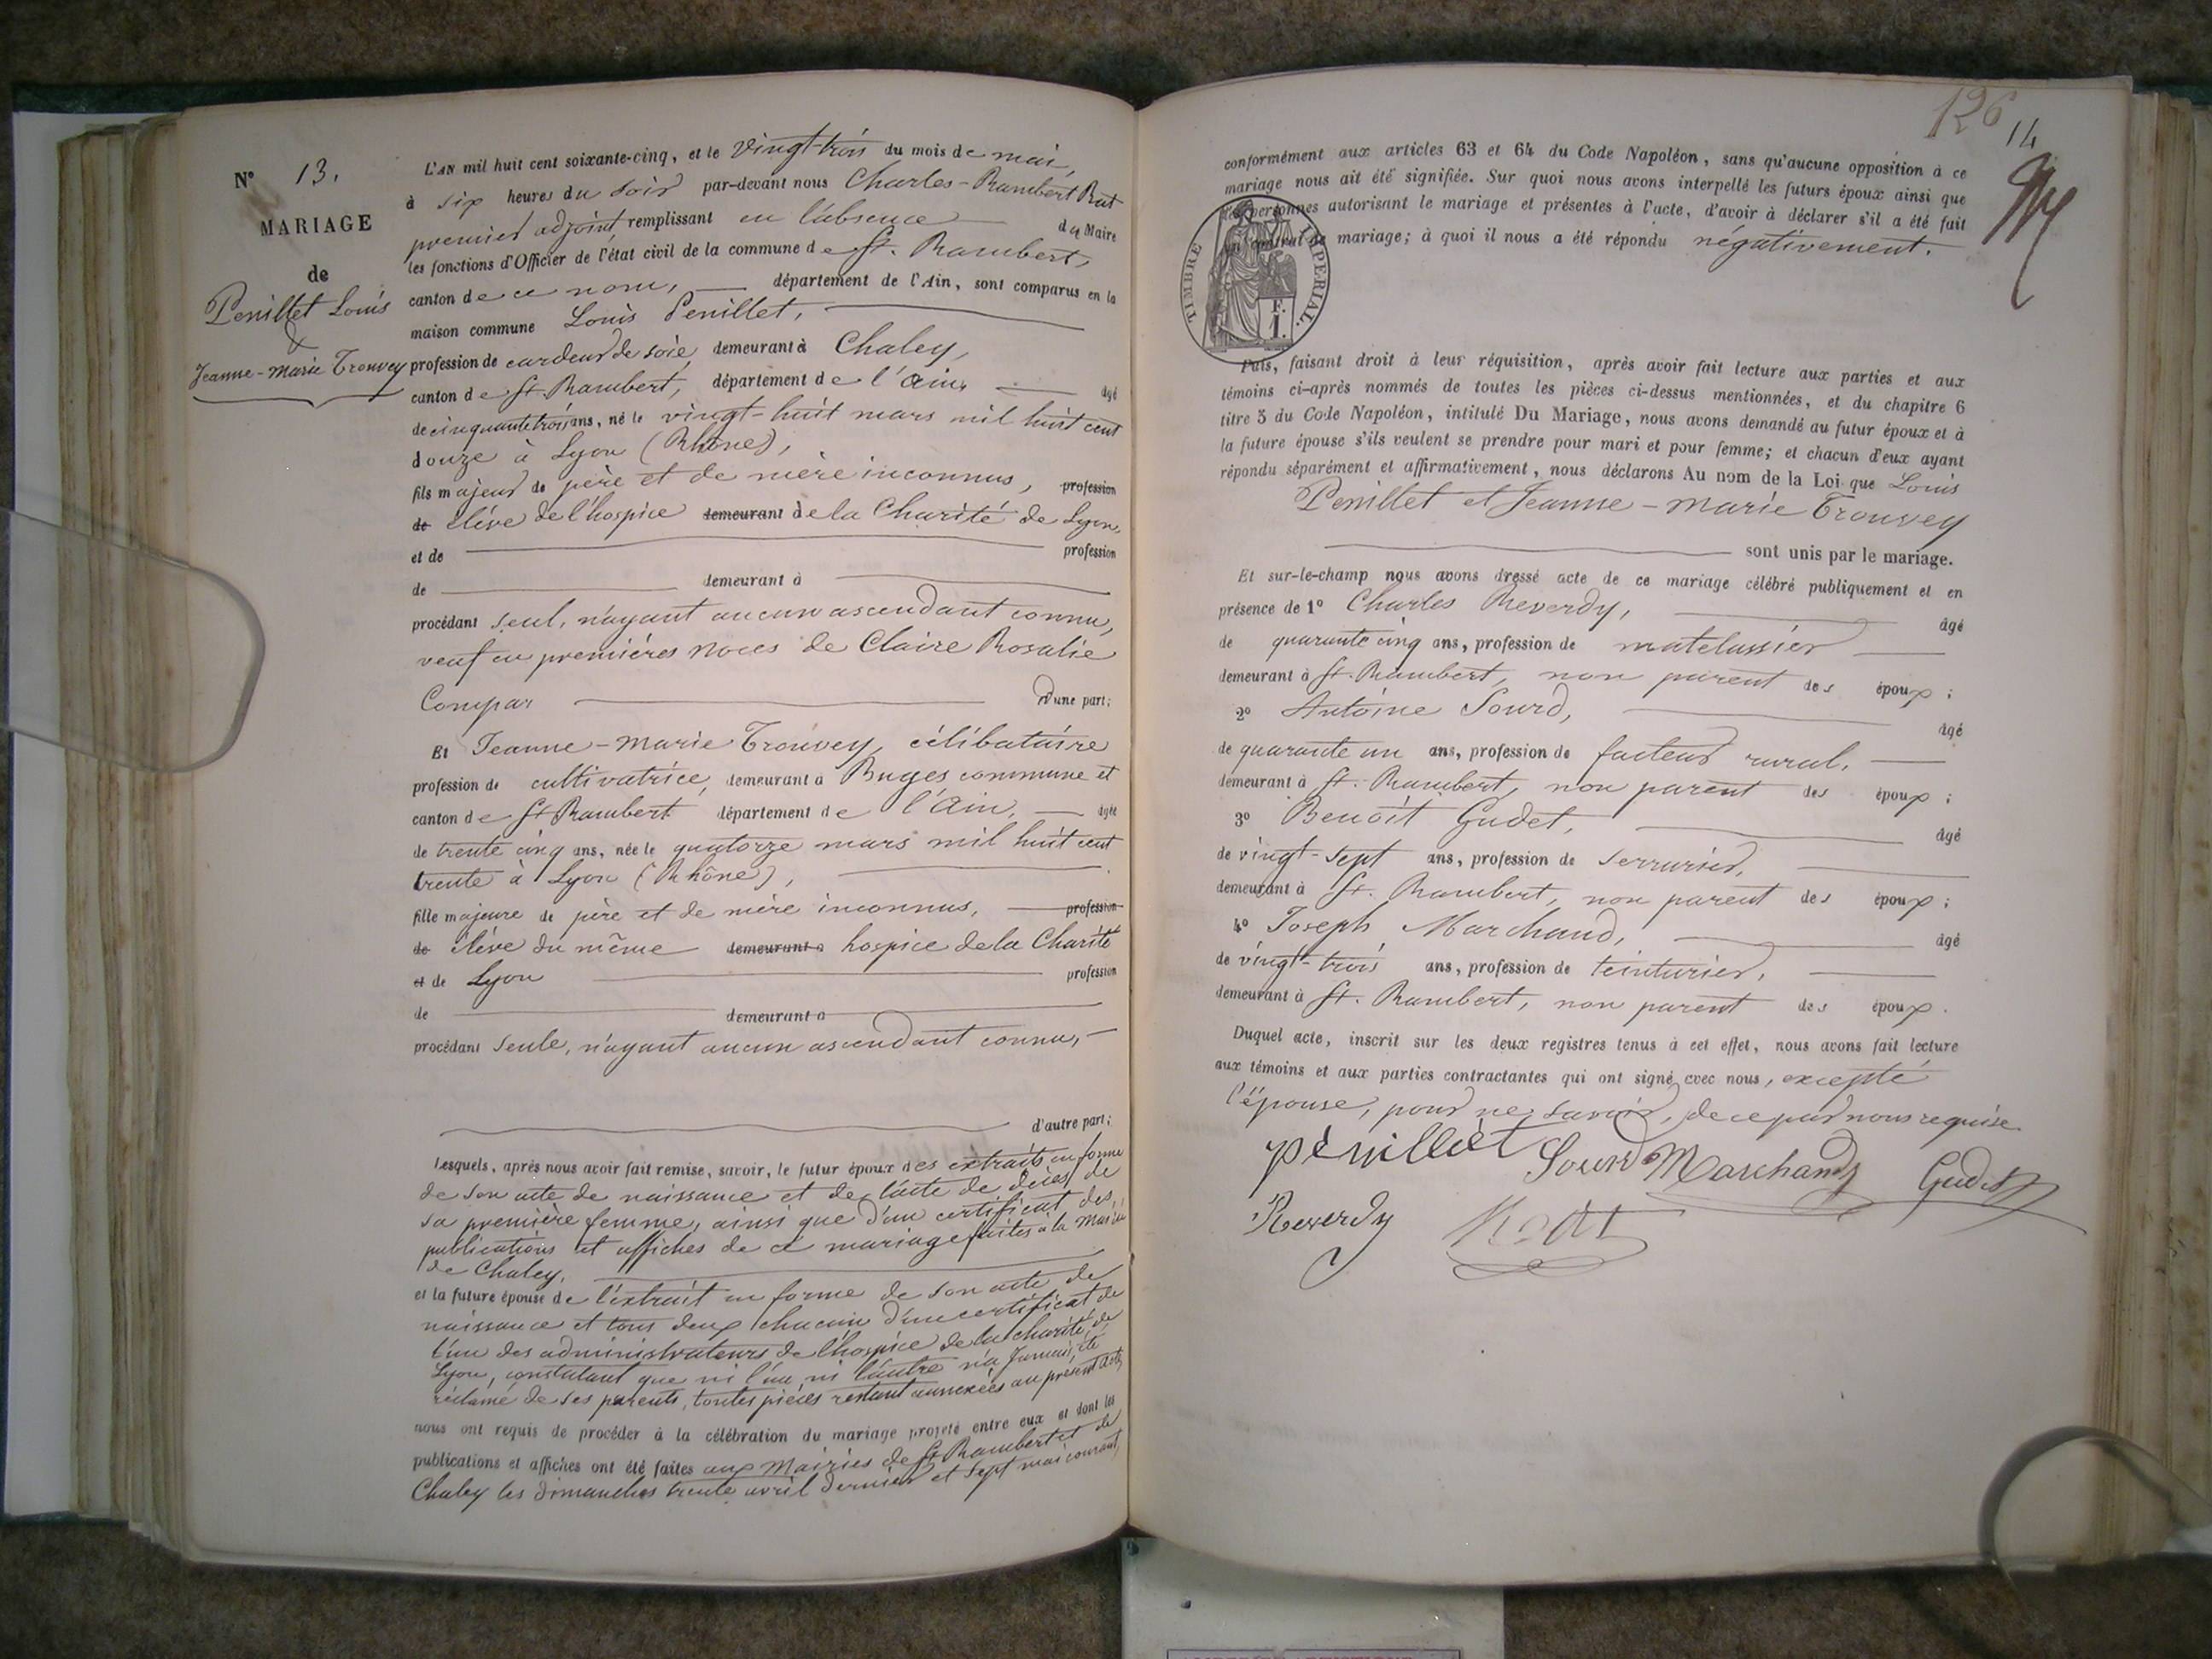 N° 13.
MARIAGE
de
Penillet Louis
&
Jeanne-Marie Trouvey
L'AN mil huit cent soixante-cinq, et le vingt-trois du mois de mai,
à six heures du soir par-devant nous Charles-Rambert Rat
premier adjoint remplissant en l'absence du Maire
les fonctions d'Officier de l'état civil de la commune de St. Rambert,
canton de ce nom, département de l'Ain, sont comparus en la
maison commune Louis Penillet,
profession de cardeur de soie, demeurant à Chaley,
canton de St. Rambert, département de l'Ain, âgé
de cinquante trois ans, né le vingt-huit mars mil huit cent
douze à Lyon (Rhône),
fils majeur de père et de mère inconnus, profession
de élève de l'hospice demeurant de la Charité de Lyon,
et de profession
de demeurant à
procédant seul, n'ayant aucun ascendant connu,
veuf en premières noces de Claire Rosalie
Compar d'une part;
Et Jeanne-Marie Trouvey, célibataire
profession de cultivatrice, demeurant à Buges commune et
canton de St Rambert département de l'Ain, âgée
de trente cinq ans, née le quatorze mars mil huit cent
trente à Lyon (Rhône),
fille majeure de père et de mère inconnus, profession
de élève du même demeurant à hospice de la Charité
et de Lyon profession
de demeurant à
procédant seule, n'ayant aucun ascendant connu,
d'autre part;
Lesquels, après nous avoir fait remise, savoir, le futur époux des extraits en forme
de son acte de naissance et de l'acte de décès de
sa première femme, ainsi que d'un certificat des
publications et affiches de ce mariage faites à la Mairie
de Chaley.
et la future épouse de l'extrait en forme de son acte de
naissance et tous deux chacun d'un certificat de
l'un des administrateurs de l'hospice de la charité de
Lyon, constatant que ni l'un, ni l'autre n'a jamais été
réclamé de ses parents, toutes pièces restant annexées au présent acte,
nous ont requis de procéder à la célébration du mariage projeté entre eux et dont les
publications et affiches ont été faites aux Mairies de St Rambert et de
Chaley les dimanches trente avril dernier et sept mai courant,
126
14
conformément aux articles 63 et 64 du Code Napoléon, sans qu'aucune opposition à ce
mariage nous ait été signifiée. Sur quoi nous avons interpellé les futurs époux ainsi que
les personnes autorisant le mariage et présentes à l'acte, d'avoir à déclarer s'il a été fait
un contrat de mariage; à quoi il nous a été répondu négativement.
TIMBRE IMPERIAL.
F.
1.
Puis, faisant droit à leur réquisition, après avoir fait lecture aux parties et aux
témoins ci-après nommés de toutes les pièces ci-dessus mentionnées, et du chapitre 6
titre 5 du Code Napoléon, intitulé Du Mariage, nous avons demandé au futur époux et à
la future épouse s'ils veulent se prendre pour mari et pour femme; et chacun d'eux ayant
répondu séparément et affirmativement, nous déclarons Au nom de la Loi que Louis
Penillet et Jeanne-Marie Trouvey
sont unis par le mariage.
Et sur-le-champ nous avons dressé acte de ce mariage célébré publiquement et en
présence de 1° Charles Reverdy, âgé
de quarante cinq ans, profession de matelassier
demeurant à St. Rambert, non parent des époux;
2° Antoine Sourd, âgé
de quarante un ans, profession de facteur rural,
demeurant à St. Rambert, non parent des époux;
3° Benoit Gudet, âgé
de vingt-sept ans, profession de serrurier,
demeurant à St. Rambert, non parent des époux;
4° Joseph Marchand, âgé
de vingt-trois ans, profession de teinturier,
demeurant à St. Rambert, non parent des époux.
Duquel acte, inscrit sur les deux registres tenus à cet effet, nous avons fait lecture
aux témoins et aux parties contractantes qui ont signé avec nous, excepté
l'épouse, pour ne savoir, de ce par nous requise.
pènillèt Sourd Marchand Gudet
Reverdy